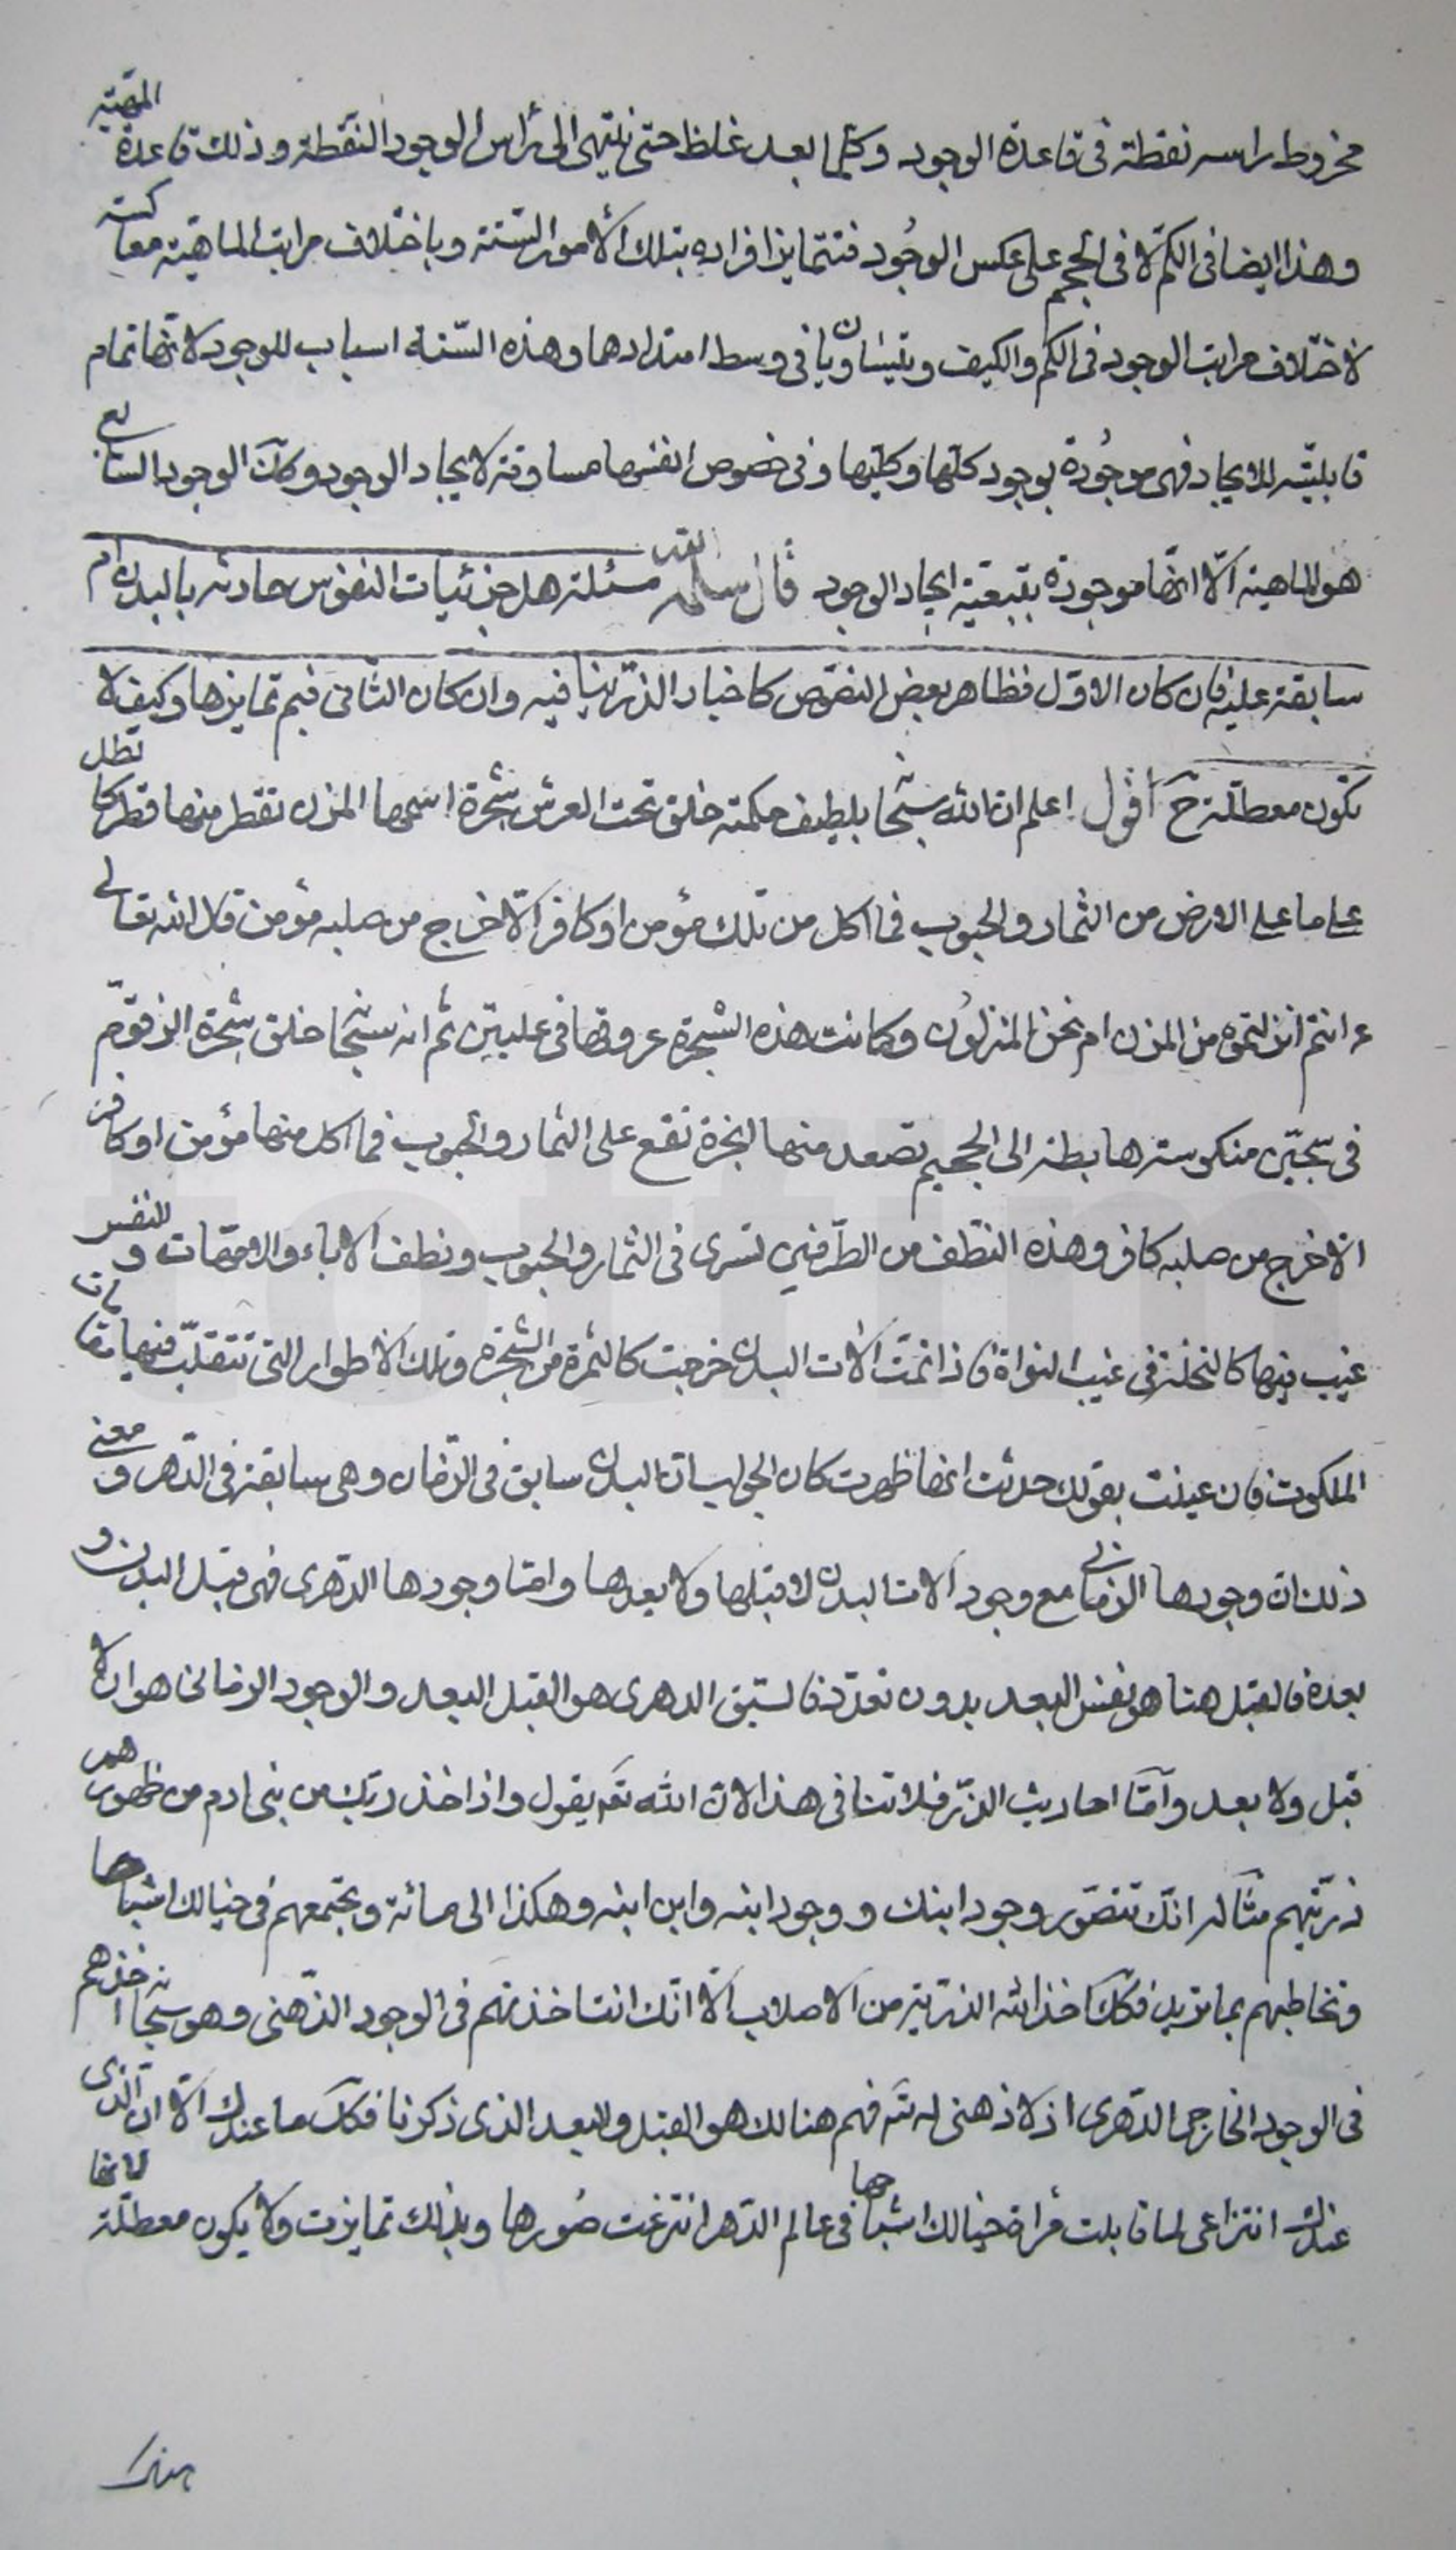 مخروط راسه نقطة فى قاعدة الوجود وكلما بعد غلظ حتى ينتهى الى راس الوجود النقطة وذلك قاعدة الماهية
وهذا ايضا فى الكم لا فى الحجم على عكس الوجود فتتمايز افراده بتلك الأمور الستة وباختلاف مراتب الماهية معاكسة
لاختلاف مراتب الوجود فى الكم والكيف ويتساويان فى وسط امتدادهما وهذه الستة اسباب للوجود لانها تمام
قابليته للايجاد فهى موجودة بوجود كلها وكليها وفى خصوص انفسها مساوقة لايجاد الوجود وكك الوجود السابع
هو الماهية الا انها موجودة بتبعية ايجاد الوجود قال سلمه الله مسئلة هل جزئيات النفوس حادثه بالبدن ام
سابقة عليه فان كان الاول فظاهر بعض النصوص كاخبار الذر ينافيه وان كان الثانى فبم تمايزها وكيف لا
تكون معطلة ح اقول اعلم ان الله سبحا بلطيف حكمته خلق تحت العرش شجرة اسمها المزن تقطر منها قطر كالطل
على ما على الارض من الثمار والحبوب فما اكل من تلك مؤمن او كافر الا خرج من صلبه مؤمن قال الله تعالى
ءانتم انزلتموه من المزن ام نحن المنزلون وكانت هذه الشجرة عروقها فى عليين ثم انه سبحا خلق شجرة الزقوم
فى سجين منكوسة رها بطة الى الجحيم تصعد منها ابخرة تقع على الثمار والحبوب فما اكل منها مؤمن او كافر
الا خرج من صلبه كافر وهذه النطف من الطرفين تسرى فى الثمار والحبوب ونطف الاباء والامهات والنفس
غيب فيها كالنخلة فى غيب النواة فاذا تمت آلات البدن خرجت كالثمرة من الشجرة وتلك الاطوار التى تتقلب فيها مقامات
الملكوت فان عنيت بقولك حدثت انها ظهرت كان الجواب ان البدن سابق فى الزمان وهى سابقة فى الدهر ومعنى
ذلك ان وجودها الزمانى مع وجود آلات البدن لا قبلها ولا بعدها واما وجودها الدهرى فهى قبل البدن و
بعده فالقبل هنا هو نفس البعد بدون تعدد فالسبق الدهرى هو القبل البعد والوجود الزمانى هو ان لا
قبل ولا بعد واما احاديث الذر فلا تنافى هذا لان الله تع يقول واذ اخذ ربك من بنى ادم من ظهورهم
ذريتهم مثاله انك تتصور وجود ابنك ووجود ابنه وابن ابنه وهكذا الى مائة وتجتمعهم فى خيالك اشباحا
وتخاطبهم بما تريد فكك اخذ الله الذرية من الاصلاب الا انك انت اخذتهم فى الوجود الذهنى وهو سبحانه اخذهم
فى الوجود الخارجى الدهرى اذ لا ذهنى له تع فهم هنالك هو القبل والبعد الذى ذكرنا فكك ما عندك الا ان الذى
عندك انتزاعى لما قابلت مراة خيالك اشباحها فى عالم الدهر انتزعت صورها وبذلك تمايزت ولا يكون معطلة لانها
هناك